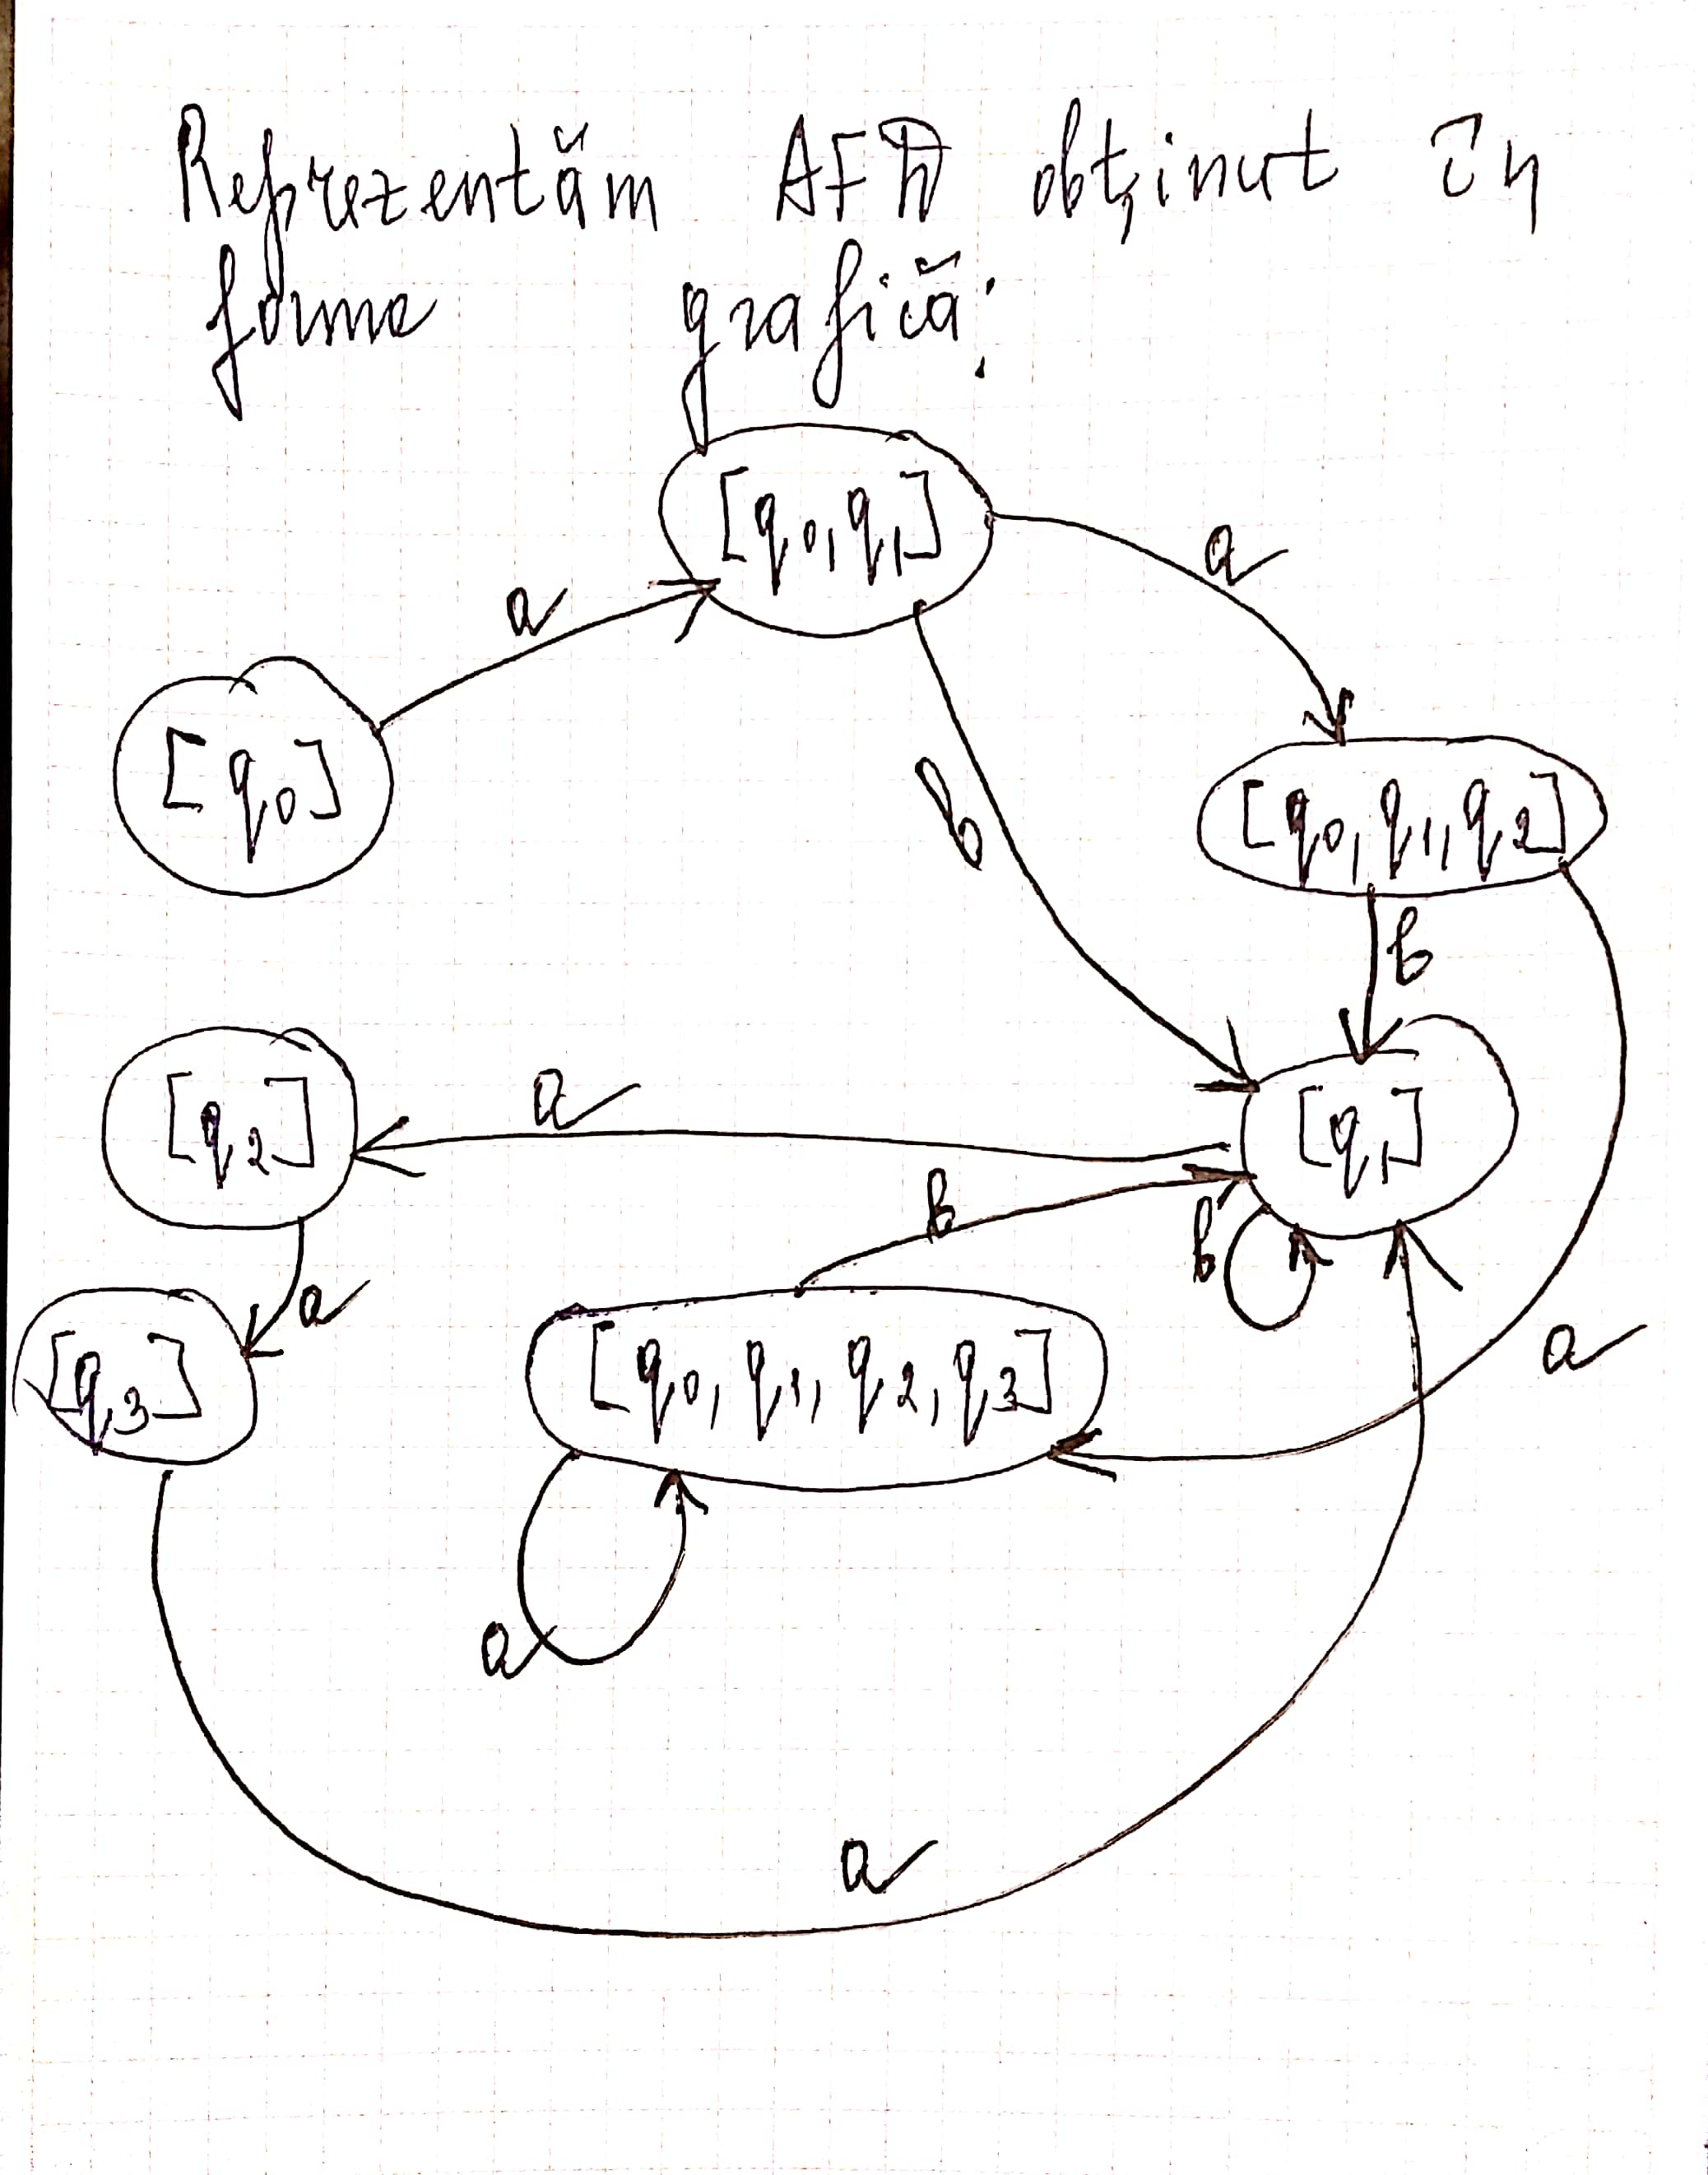 Reprezentăm AFD obținut în
forme grafică:
[q0,q1]
a
a
[q0]
b
[q0,q1,q2]
b
[q2]
a
[q1]
b
b
a
[q3]
[q0,q1,q2,q3]
a
a
a